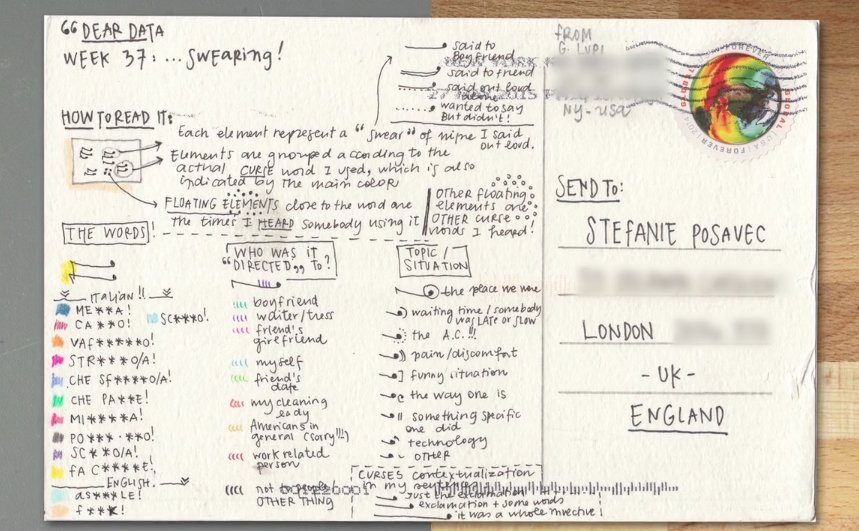 “ DEAR DATA
WEEK 37: ... SWEARING!
said to
Boyfriend
said to friend
said out loud
alone
wanted to say
But didn't!
HOW TO READ IT:
Each element represent a “swear” of mine I said
out loud.
Elements are grouped according to the
actual CURSE word I used, which is also
indicated by the main color
FLOATING ELEMENTS close to the word are
the times I HEARD somebody using it
OTHER floating
elements are
OTHER curse
words I heard!
THE WORDS!
Italian!!
ME**A!
CA**O!
SC***O!
VAF*****O!
STR***O/A!
CHE SF****O/A!
CHE PA**E!
MI****A!
PO***·**O!
SC**O/A!
FA C*****E!
ENGLISH.
AS***LE!
F***K!
WHO WAS IT
“DIRECTED„ TO?
boyfriend
waiter/tress
friend's
girlfriend
myself
friend's
date
my cleaning
lady
Americans in
general (sorry!!!)
work related
person
not to people/
OTHER THING
TOPIC/
SITUATION
the place we were
waiting time / somebody
was LATE or SLOW
the A.C.!!!
pain/discomfort
funny situation
the way one is
something specific
one did
technology
OTHER
CURSES contextualization
in my sentences
Just the exclamation
exclamation + some words
it was a whole invective!
FROM
G. LUPI
NY-USA
FOREVER
GLOBAL
USA FOREVER 2014
SEND TO:
STEFANIE POSAVEC
LONDON
-UK-
ENGLAND